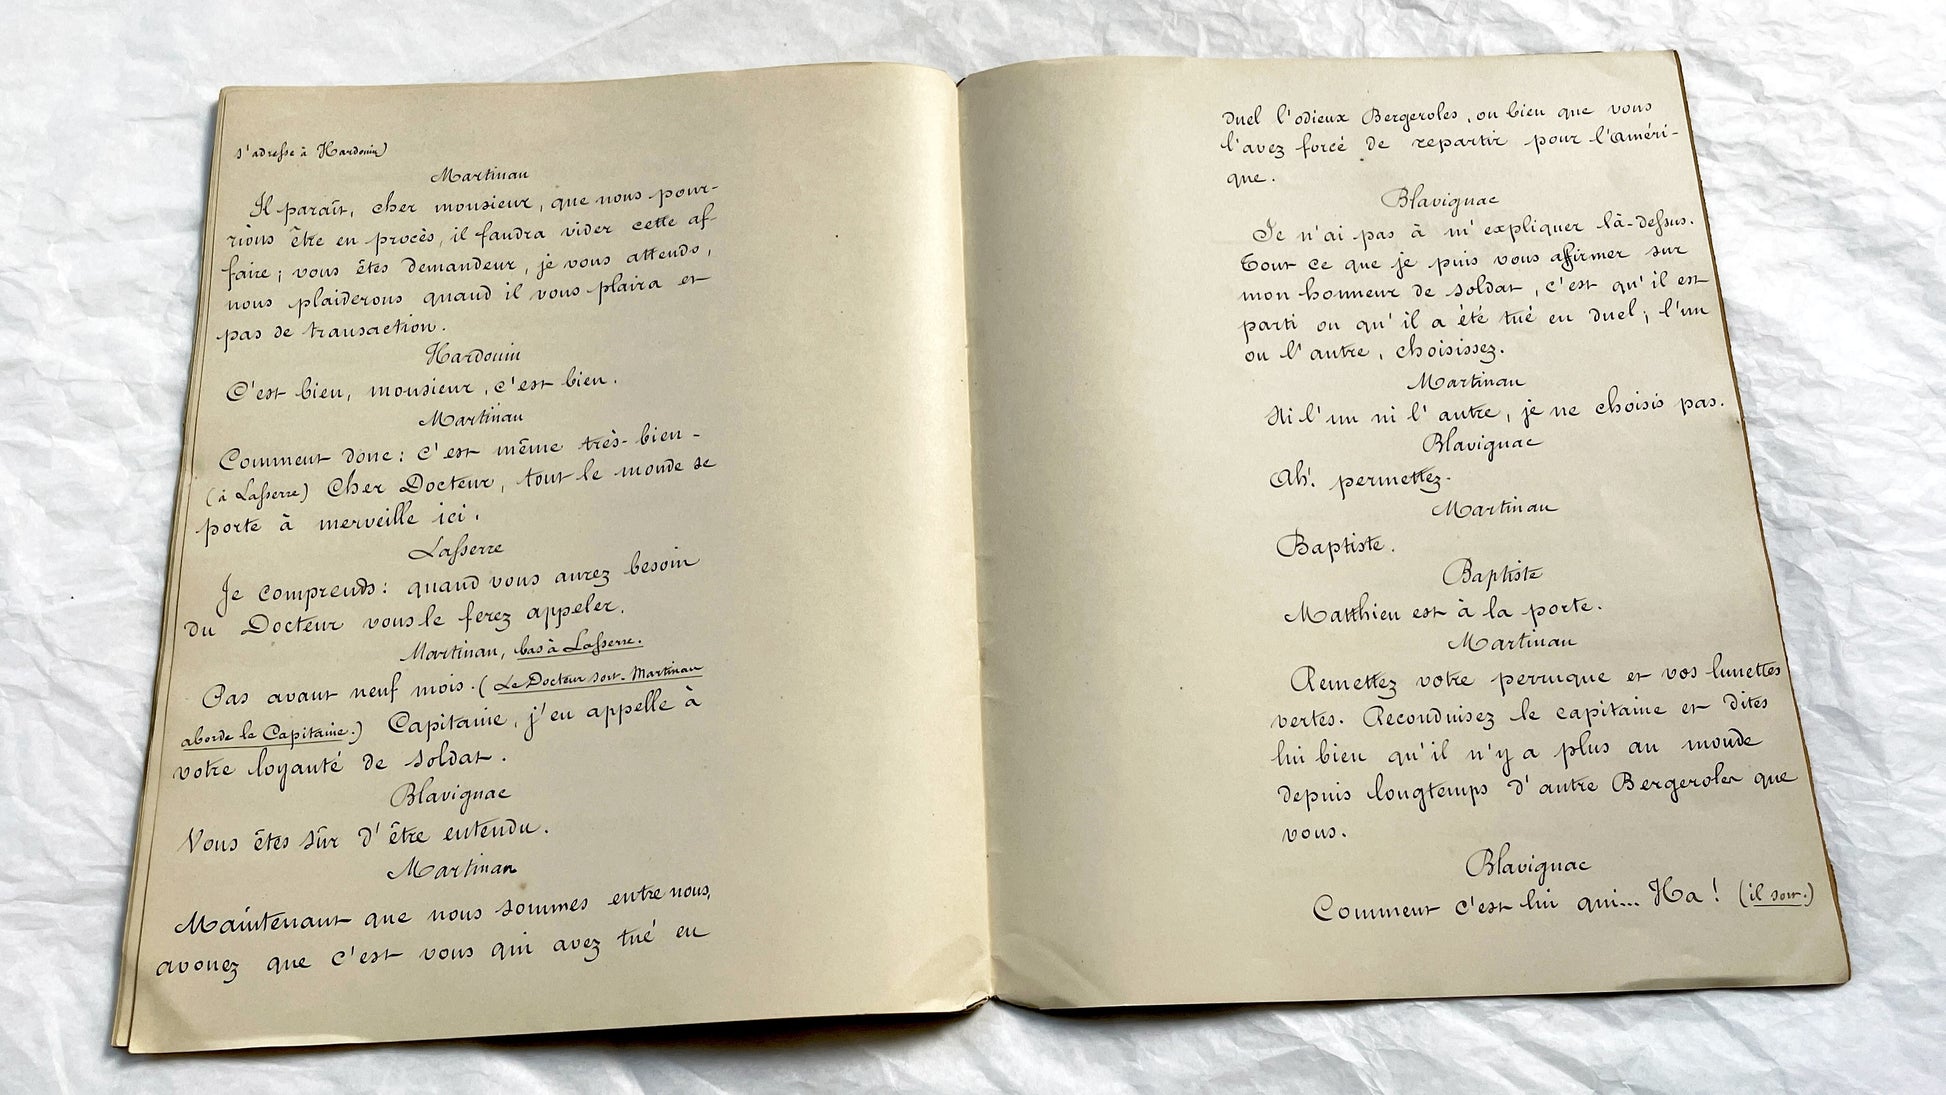 s'adresse à Hardouin)
Martinau
Il paraît, cher monsieur, que nous pour-
rions être en procès, il faudra vider cette af-
faire; vous êtes demandeur, je vous attends,
nous plaiderons quand il vous plaira et
pas de transaction.
Hardouin
C'est bien, monsieur, c'est bien.
Martinau
Comment donc: c'est même très-bien-
(à Lasserre) Cher Docteur, tout le monde se
porte à merveille ici.
Lasserre
Je comprends: quand vous aurez besoin
du Docteur vous le ferez appeler.
Martinau, bas à Lasserre.
Pas avant neuf mois. (Le Docteur sort. Martinau
aborde le Capitaine.) Capitaine, j'en appelle à
votre loyauté de soldat.
Blavignac
Vous êtes sûr d'être entendu.
Martinau
Maintenant que nous sommes entre nous,
avouez que c'est vous qui avez tué en
duel l'odieux Bergeroles, ou bien que vous
l'avez forcé de repartir pour l'Améri-
que.
Blavignac
Je n'ai pas à m'expliquer là-dessus.
Tout ce que je puis vous affirmer sur
mon honneur de soldat, c'est qu'il est
parti ou qu'il a été tué en duel; l'un
ou l'autre, choisissez.
Martinau
Ni l'un ni l'autre, je ne choisis pas.
Blavignac
Ah! permettez.
Martinau
Baptiste.
Baptiste
Matthieu est à la porte.
Martinau
Remettez votre perruque et vos lunettes
vertes. Reconduisez le capitaine et dites
lui bien qu'il n'y a plus au monde
depuis longtemps d'autre Bergeroles que
vous.
Blavignac
Comment c'est lui qui... Ha! (il sort.)